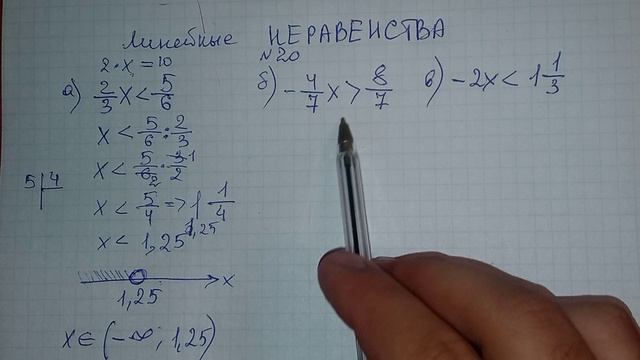 Линейные НЕРАВЕНСТВА
№20
2·x=10
а) 2/3 x < 5/6
x < 5/6 : 2/3
x < 5/6 2 · 3 1/2
5 | 4
x < 5/4 => 1 1/4
1,25
x < 1,25
x
1,25
x ∈ (-∞; 1,25)
б) - 4/7 x > 8/7
в) - 2x < 1 1/3